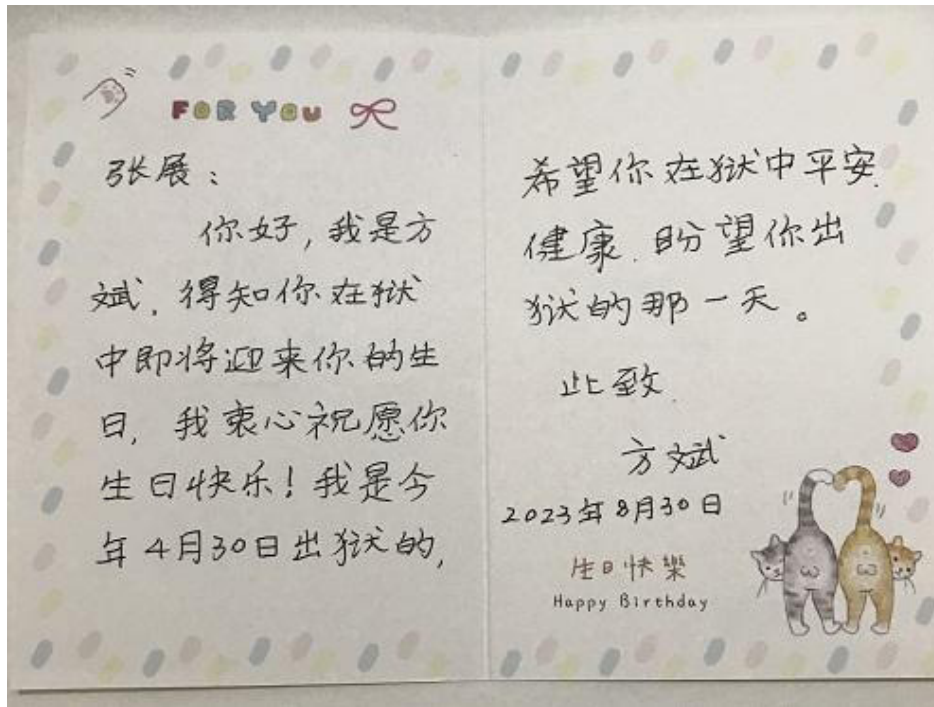 FOR YOU
张展：
你好，我是方
斌，得知你在狱
中即将迎来你的生
日，我衷心祝愿你
生日快乐！我是今
年4月30日出狱的，
希望你在狱中平安
健康，盼望你出
狱的那一天。
此致
方斌
2023年8月30日
生日快樂
Happy Birthday